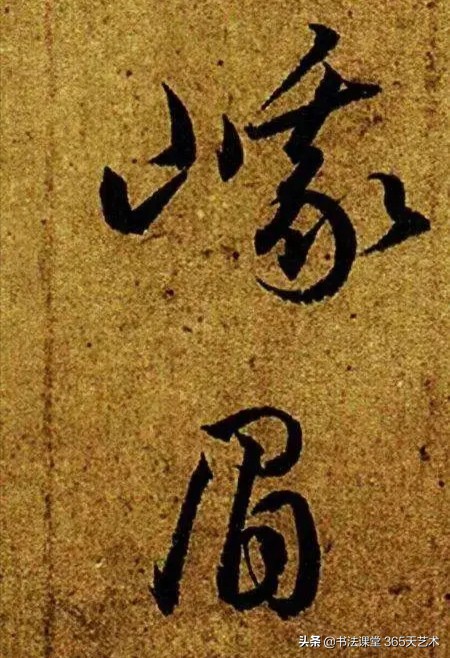 峨
眉
头条 @书法课堂 365天艺术